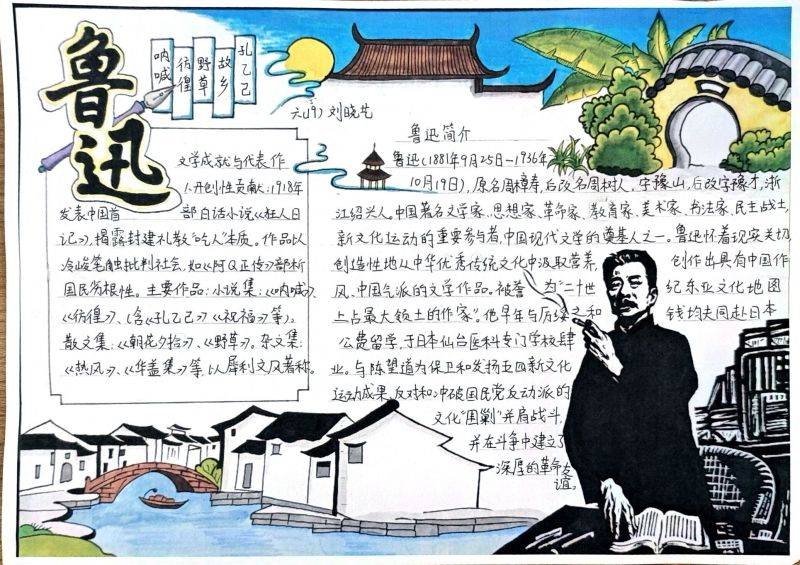 鲁迅
呐喊
彷徨
野草
故乡
孔乙己
六(19) 刘晓艺
文学成就与代表作
1.开创性贡献:1918年
发表中国首部白话小说《狂人日
记》,揭露封建礼教“吃人”本质。作品以
冷峻笔触批判社会,如《阿Q正传》剖析
国民劣根性。主要作品:小说集:《呐喊》、
《彷徨》、(含《孔乙己》《祝福》等)。
散文集:《朝花夕拾》、《野草》。杂文集:
《热风》、《华盖集》等,以犀利文风著称。
鲁迅简介
鲁迅(1881年9月25日-1936年
10月19日),原名周樟寿,后改名周树人,字豫山,后改字豫才,浙
江绍兴人。中国著名文学家、思想家、革命家、教育家、美术家、书法家、民主战士,
新文化运动的重要参与者,中国现代文学的奠基人之一。鲁迅怀着现实关切,
创造性地从中华优秀传统文化中汲取营养,创作出具有中国作
风、中国气派的文学作品。被誉为“二十世纪东亚文化地图
上占最大领土的作家”。他早年与厉绥之和钱均夫同赴日本
公费留学,于日本仙台医科专门学校肄
业。与陈望道为保卫和发扬五四新文化
运动成果、反对和冲破国民党反动派的
文化“围剿”并肩战斗,
并在斗争中建立了
深厚的革命友
谊。